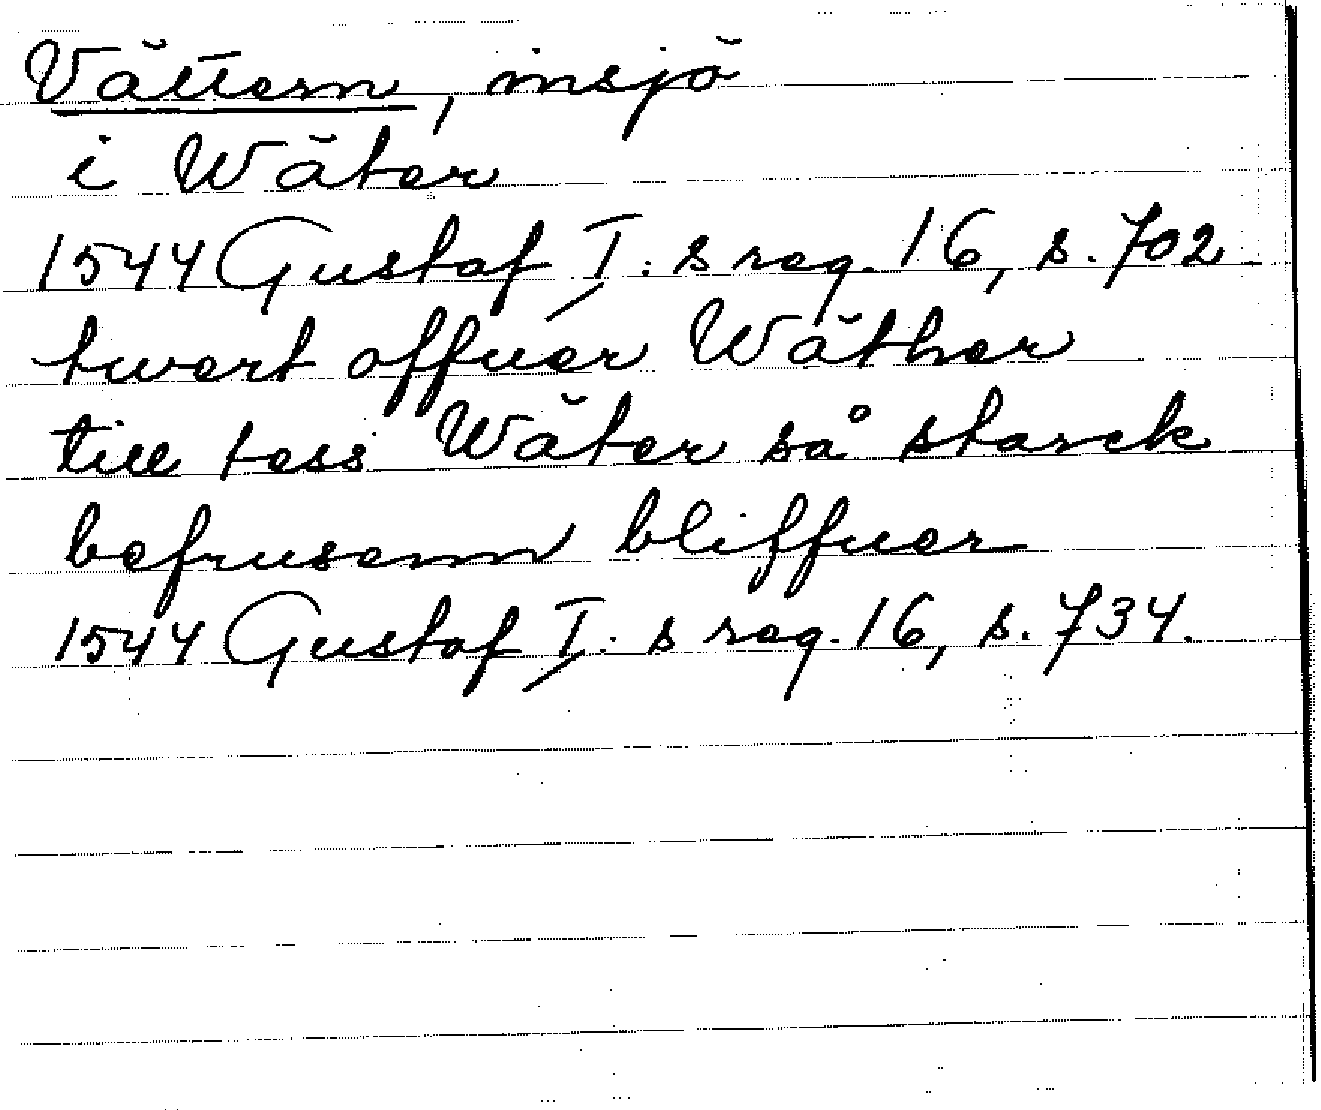 Vättern, insjö
i Wäter
1544 Gustaf I:s reg. 16, s. 702
twert offuer Wäther
till tess Wäter så starck
befrusenn bliffuer
1544 Gustaf I:s reg. 16, s. 734.